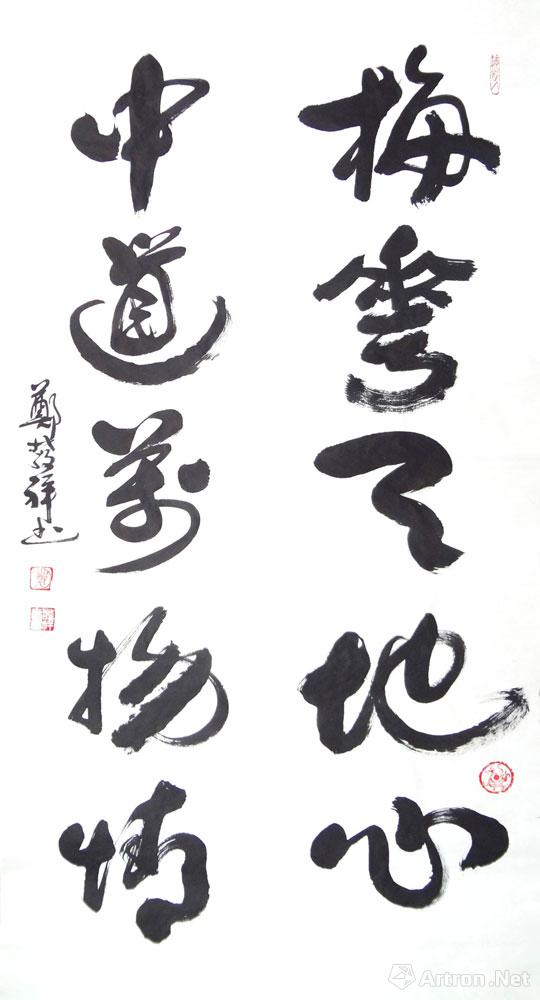 梅華天地心
中道萬物情
鄭祥书
Artron.Net